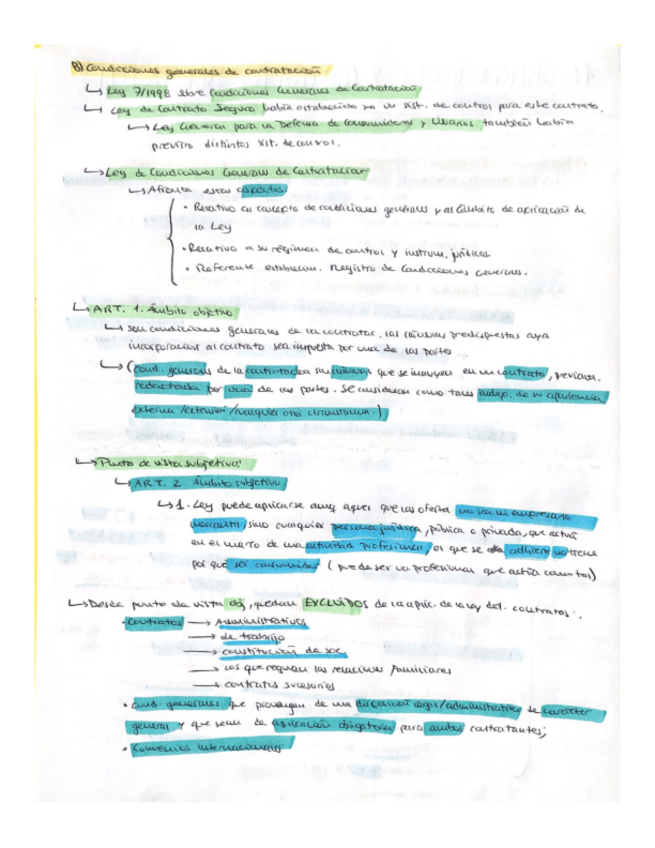 B) Condiciones generales de contratación
↳ Ley 7/1998 sobre Condiciones Generales de Contratación
↳ Ley de Contrato Seguro había establecido ya un sist. de control para este contrato.
↳ Ley General para la Defensa de Consumidores y Usuarios también había
previsto distintos sist. de control.
↳ Ley de Condiciones Generales de Contratación
↳ Afronta estos aspectos:
• Relativo al concepto de condiciones generales y al ámbito de aplicación de
la Ley
• Relativo a su régimen de control y instrum. jurídicos
• Referente establecim. Registro de Condiciones Generales.
↳ ART. 1. Ámbito objetivo
↳ son condiciones generales de la contratac. las cláusulas predispuestas cuya
incorporación al contrato sea impuesta por una de las partes ...
↳ (Cond. generales de la contratación son cláusulas que se incluyen en un contrato, previam.
redactada por una de las partes. Se consideran como tales indep. de su apariencia
externa / extensión / cualquier otra circunstancia.)
↳ Punto de vista subjetivo:
↳ ART. 2. Ámbito subjetivo
↳ 1. Ley puede aplicarse aunq aquel que las oferta no sea un empresario
mercantil, sino cualquier persona jurídica, pública o privada, que actúa
en el marco de una actividad profesional, el que se adhiere no tiene
por qué ser consumidor (puede ser un profesional que actúa como tal)
↳ Desde punto de vista obj, quedan EXCLUIDOS de la aplic. de la ley del. contratos:
• Contratos → Administrativos
→ de trabajo
→ constitución de soc
→ los que regulan las relaciones familiares
→ contratos sucesorios
• Cond. generales que provengan de una disposición legal/administrativa de carácter
general y que sean de aplicación obligatoria para ambos contratantes;
• Convenios internacionales